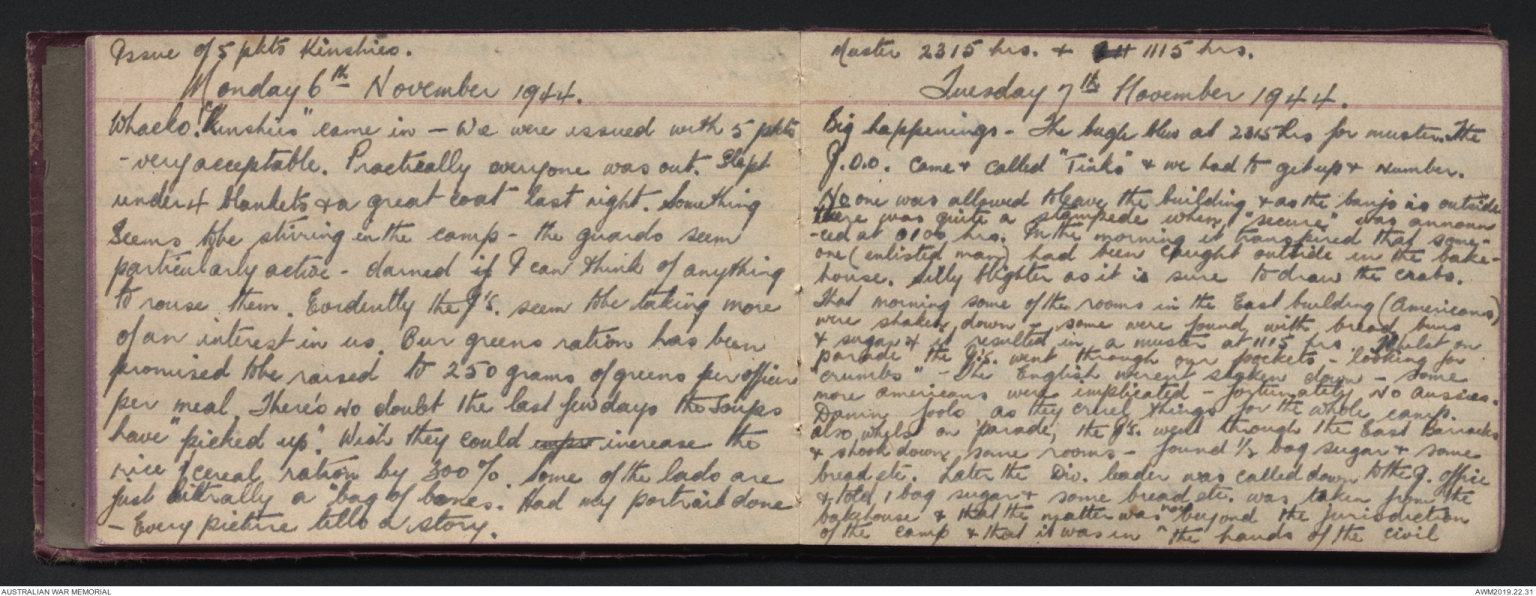 Issue of 5 pkts Kinshies.
Monday 6th November 1944.
Whacko! "Kinshies" came in - We were issued with 5 pkts
- very acceptable. Practically everyone was out. Slept
under 4 blankets & a great coat last night. Something
seems to be stirring in the camp - the guards seem
particularly active - darned if I can think of anything
to rouse them. Evidently the J's. seem to be taking more
of an interest in us. Our greens ration has been
promised to be raised to 250 grams of greens per officer
per meal. There's no doubt the last few days the soups
have "picked up". Wish they could increase the
rice & cereal ration by 300%. Some of the lads are
just literally a "bag of bones. Had my portrait done
- Every picture tells a story.
Muster 2315 hrs. & 1115 hrs.
Tuesday 7th November 1944.
Big happenings - The bugle blew at 2315 hrs for muster. The
J.D.O. came & called "Tinko" & we had to get up & number.
No one was allowed to leave the building & as the banjo is outside
there was quite a stampede when "secure" was announ
-ced at 0100 hrs. In the morning it transpired that some-
one (enlisted man) had been caught outside in the bake-
house. Silly blighter as it is sure to draw the crabs.
That morning some of the rooms in the East building (Americans)
were shaken down - some were found with bread, buns
& sugar & it resulted in a muster at 1115 hrs. Whilst on
parade the J's. went through our pockets - looking for
"crumbs" - The English weren't shaken down - some
more americans were implicated - fortunately no Aussies.
Damn fools as they cruel things for the whole camp.
Also, whilst on parade, the J's. went through the East Barracks
& shook down some rooms - found 1/2 bag sugar & some
bread etc. Later the Div. leader was called down to the J. office
& told 1 bag sugar & some bread etc. was taken from the
bakehouse & that the matter was now beyond the jurisdiction
of the camp & that it was in "the hands of the civil
AUSTRALIAN WAR MEMORIAL
AWM2019.22.31